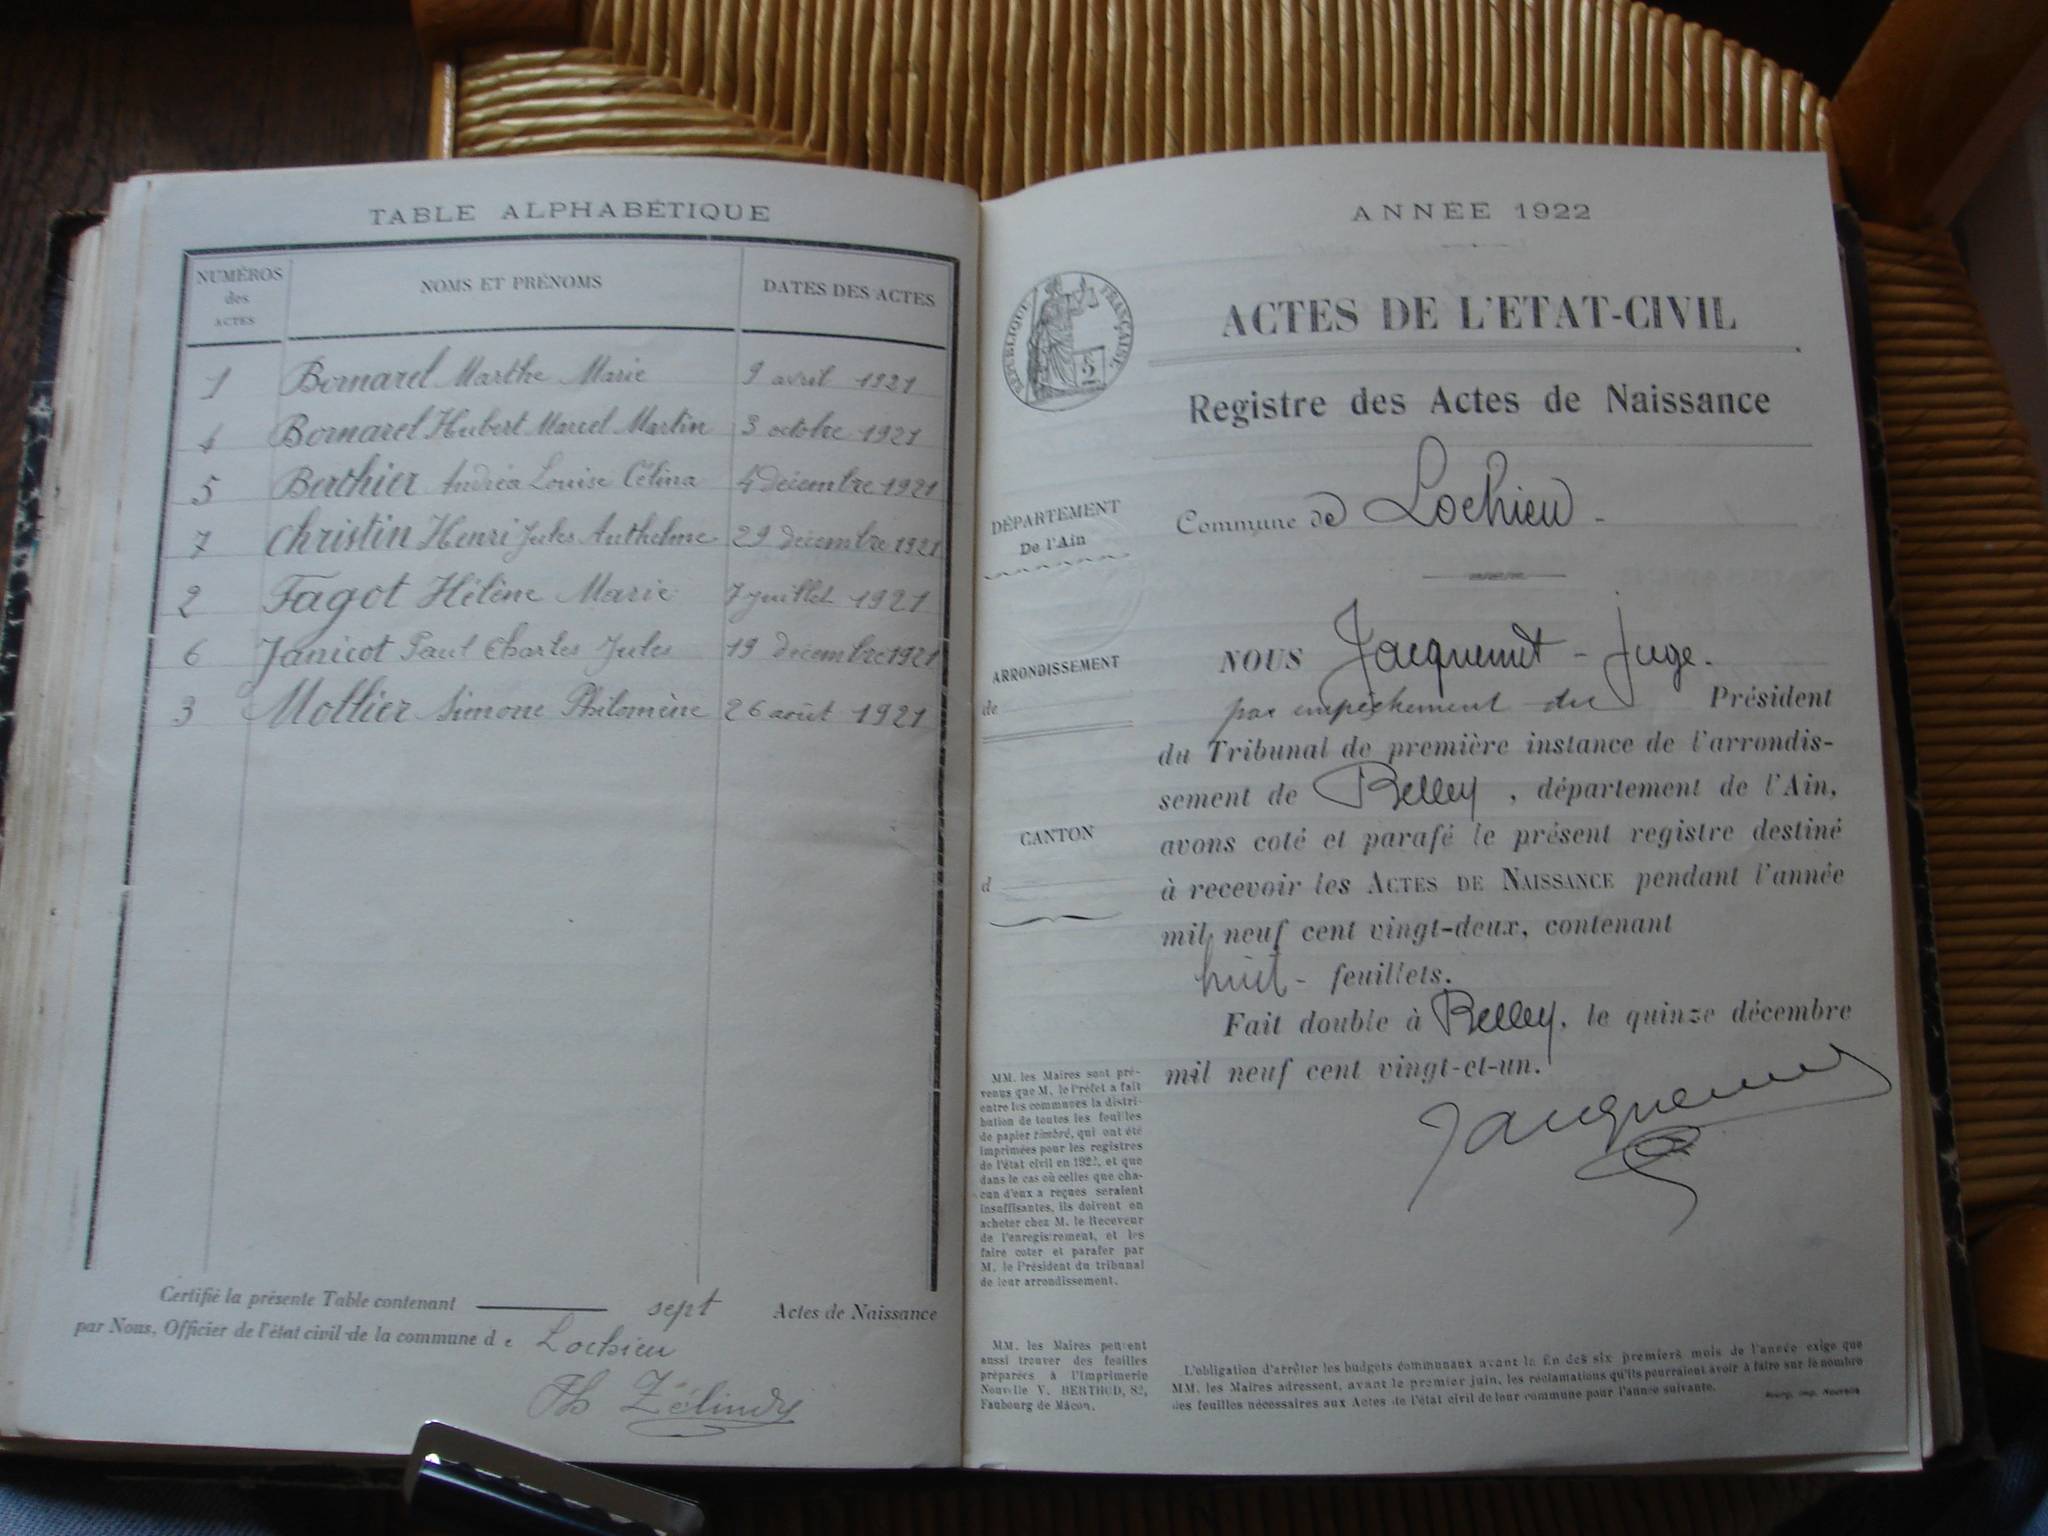 TABLE ALPHABÉTIQUE
NUMÉROS des ACTES
NOMS ET PRÉNOMS
DATES DES ACTES
1 Bornarel Marthe Marie 9 avril 1921
4 Bornarel Hubert Marcel Martin 3 octobre 1921
5 Berthier Andréa Louise Célina 4 décembre 1921
7 Christin Henri Jules Anthelme 29 décembre 1921
2 Fagot Hélène Marie 7 juillet 1921
6 Janicot Paul Charles Jules 19 décembre 1921
3 Mollier Simone Philomène 26 août 1921
Certifié la présente Table contenant sept Actes de Naissance
par Nous, Officier de l'état civil de la commune de Lochieu
Th Zélindy
ANNÉE 1922
RÉPUBLIQUE FRANÇAISE
5
ACTES DE L'ETAT-CIVIL
Registre des Actes de Naissance
Commune de Lochieu
DÉPARTEMENT
De l'Ain
ARRONDISSEMENT
de
CANTON
d
NOUS Jacquemet - Juge.
par empêchement du Président
du Tribunal de première instance de l'arrondis-
sement de Belley, département de l'Ain,
avons coté et parafé le présent registre destiné
à recevoir les ACTES DE NAISSANCE pendant l'année
mil neuf cent vingt-deux, contenant
huit - feuillets.
Fait double à Belley, le quinze décembre
mil neuf cent vingt-et-un.
MM. les Maires sont pré-
venus que M. le Préfet a fait
entre les communes la distri-
bution de toutes les feuilles
de papier timbré, qui ont été
imprimées pour les registres
de l'état civil en 1922, et que
dans le cas où celles que cha-
cun d'eux a reçues seraient
insuffisantes, ils doivent en
acheter chez M. le Receveur
de l'enregistrement, et les
faire coter et parafer par
M. le Président du tribunal
de leur arrondissement.
MM. les Maires peuvent
aussi trouver des feuilles
préparées à l'Imprimerie
Nouvelle V. BERTHOD, 82,
Faubourg de Mâcon.
L'obligation d'arrêter les budgets communaux avant la fin des six premiers mois de l'année exige que
MM. les Maires adressent, avant le premier juin, les réclamations qu'ils pourraient avoir à faire sur le nombre
des feuilles nécessaires aux Actes de l'état civil de leur commune pour l'année suivante.
Bourg, imp. Nouvelle